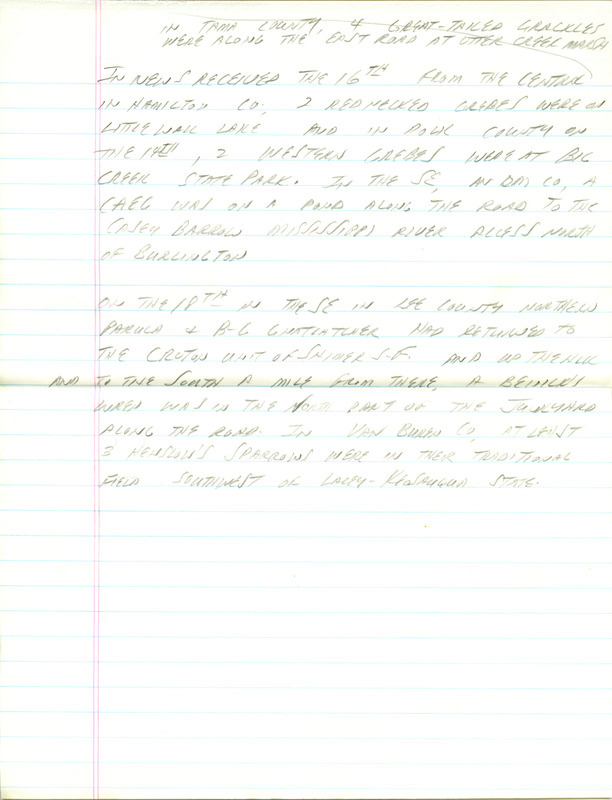 IN TAMA COUNTY, 4 GREAT-TAILED GRACKLES
WERE ALONG THE EAST ROAD AT OTTER CREEK MARSH
IN NEWS RECEIVED THE 16TH FROM THE CENTRAL
IN HAMILTON CO, 2 RED NECKED GREBES WERE ON
LITTLE WALL LAKE AND IN POLK COUNTY ON
THE 14TH, 2 WESTERN GREBES WERE AT BIG
CREEK STATE PARK. IN THE SE, CO, A
CAEG WAS ON A POND ALONG THE ROAD TO THE
CASEY BARROW MISSISSIPPI RIVER ACCESS NORTH
OF BURLINGTON
ON THE 18TH IN THE SE IN LEE COUNTY NORTHERN
PARULA & B-G GNATCATCHER HAD RETURNED TO
THE CROTON UNIT OF SHIMEK S.F. AND UP THE HILL
AND TO THE SOUTH A MILE FROM THERE, A BEWICK'S
WREN WAS IN THE NORTH PART OF THE JUNKYARD
ALONG THE ROAD. IN VAN BUREN CO, AT LEAST
3 HENSLOW'S SPARROWS WERE IN THEIR TRADITIONAL
FIELD SOUTHWEST OF LACEY-KEOSAUQUA STATE.